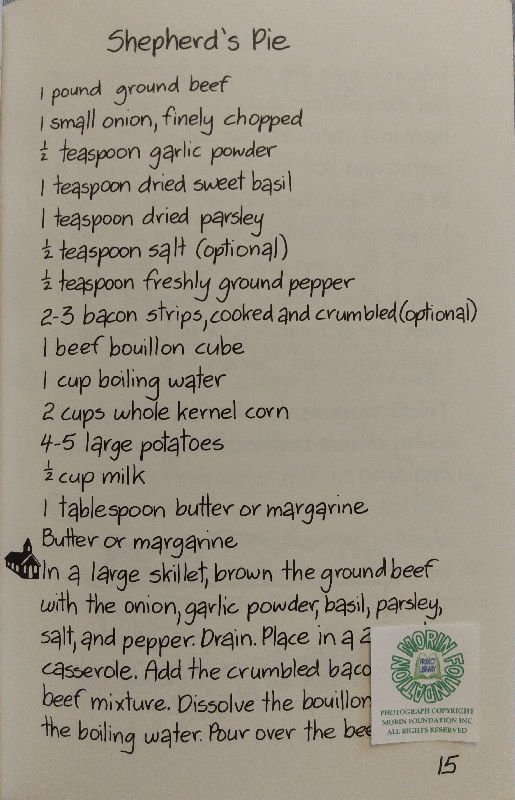 Shepherd's Pie
1 pound ground beef
1 small onion, finely chopped
½ teaspoon garlic powder
1 teaspoon dried sweet basil
1 teaspoon dried parsley
½ teaspoon salt (optional)
½ teaspoon freshly ground pepper
2-3 bacon strips, cooked and crumbled (optional)
1 beef bouillon cube
1 cup boiling water
2 cups whole kernel corn
4-5 large potatoes
½ cup milk
1 tablespoon butter or margarine
Butter or margarine
In a large skillet, brown the ground beef
with the onion, garlic powder, basil, parsley,
salt, and pepper. Drain. Place in a 2
casserole. Add the crumbled baco
beef mixture. Dissolve the bouillon
the boiling water. Pour over the bee
MORIN FOUNDATION
PROJECT
LIBRARY
PHOTOGRAPH COPYRIGHT
MORIN FOUNDATION INC
ALL RIGHTS RESERVED
15